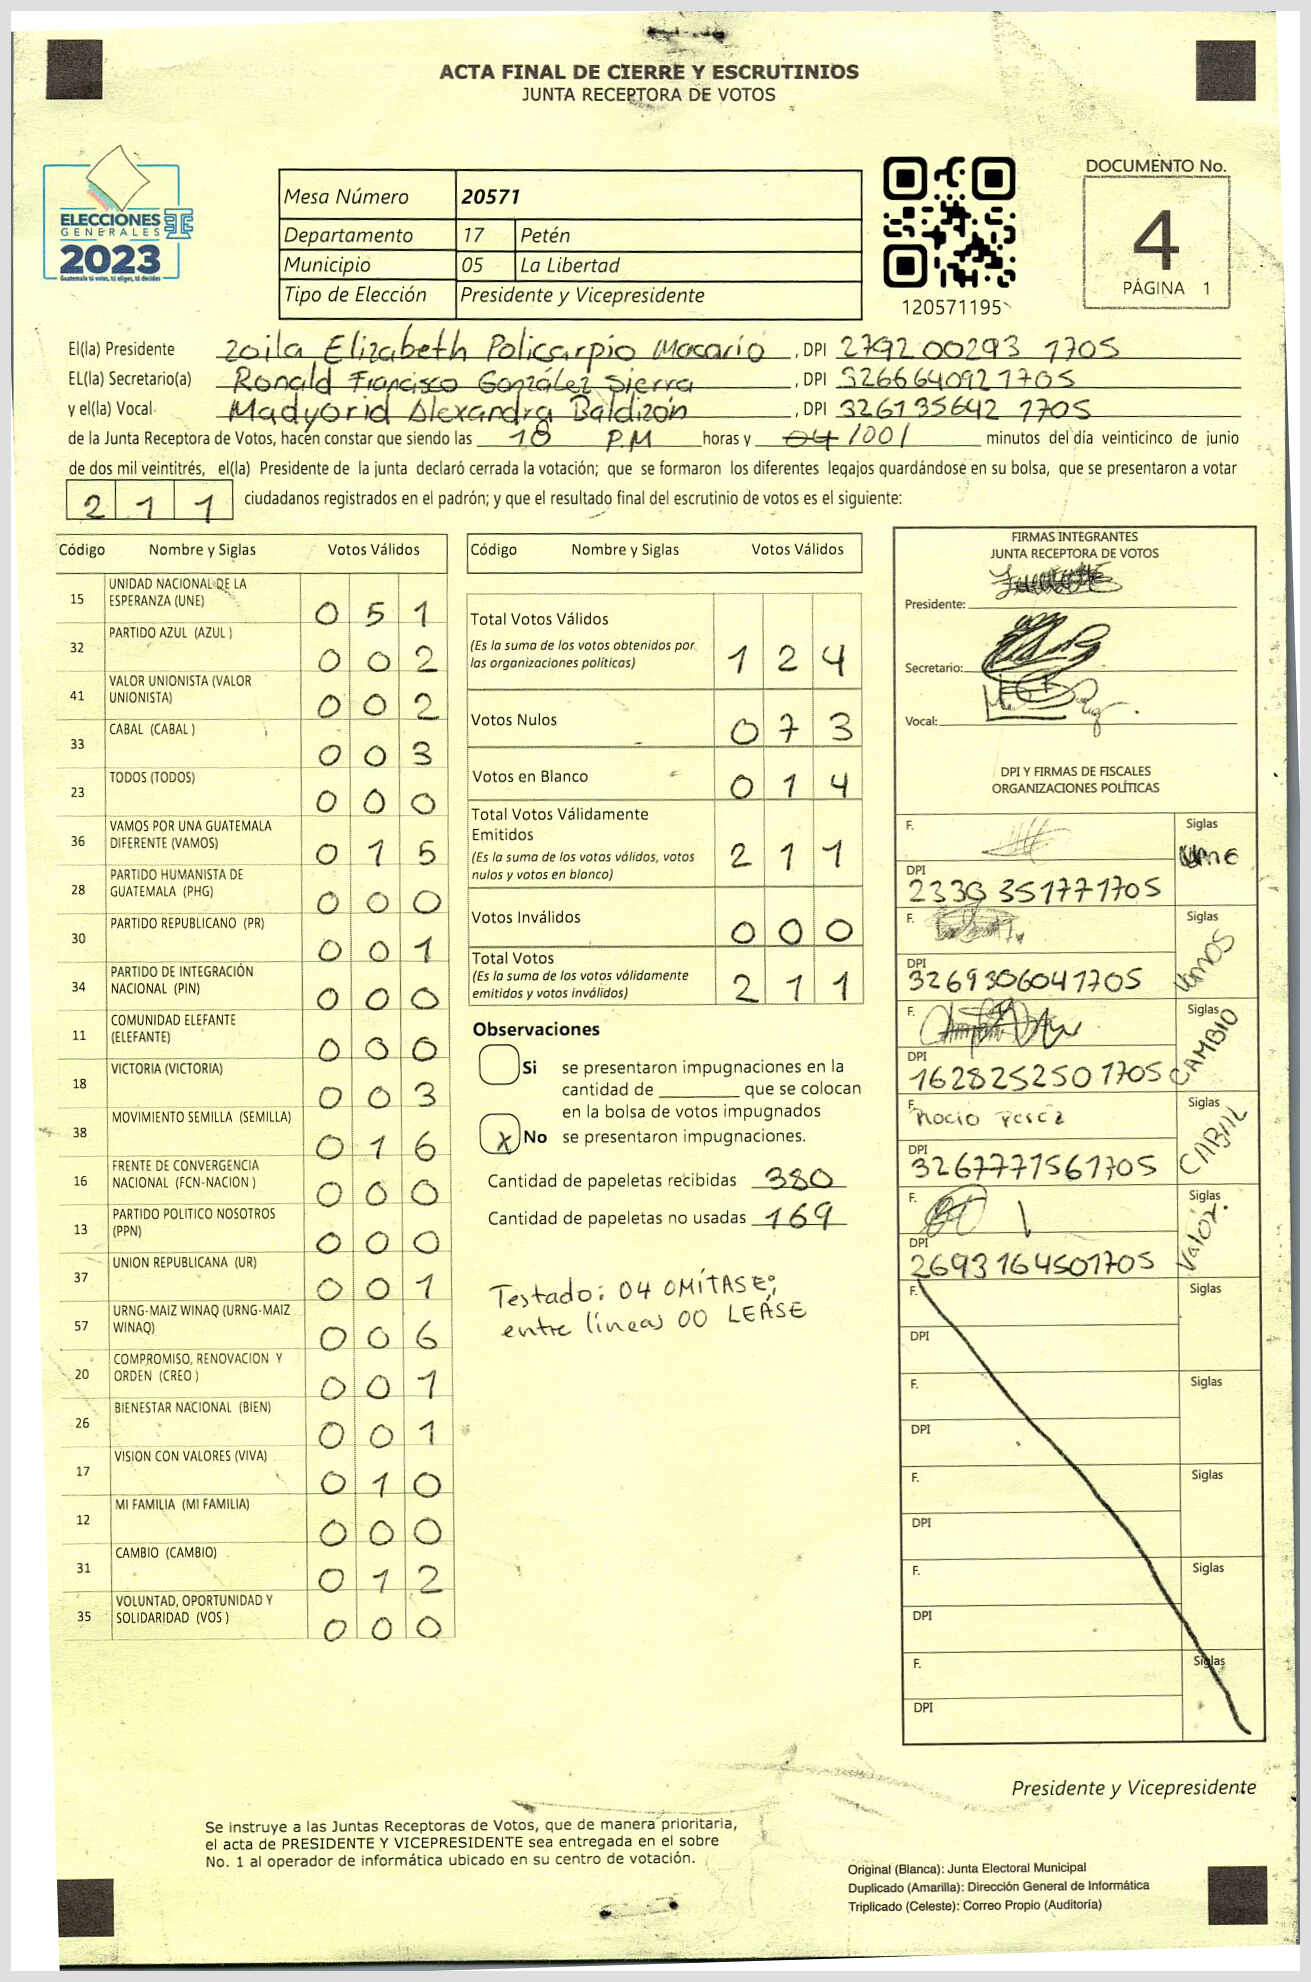 ACTA FINAL DE CIERRE Y ESCRUTINIOS
JUNTA RECEPTORA DE VOTOS
ELECCIONES
GENERALES
2023
Guatemala tú votas, tú eliges, tú decides
Mesa Número 20571
Departamento 17 Petén
Municipio 05 La Libertad
Tipo de Elección Presidente y Vicepresidente
120571195
DOCUMENTO No.
4
PÁGINA 1
El(la) Presidente Zoila Elizabeth Policarpio Macario , DPI 2792 00293 1705
EL(la) Secretario(a) Ronald Francisco González Sierra , DPI 3266640921705
y el(la) Vocal Madyorid Alexandra Baldizón , DPI 326135642 1705
de la Junta Receptora de Votos, hacen constar que siendo las 18 P.M horas y 04 /00/ minutos del día veinticinco de junio
de dos mil veintitrés, el(la) Presidente de la junta declaró cerrada la votación; que se formaron los diferentes legajos guardándose en su bolsa, que se presentaron a votar
2 1 1 ciudadanos registrados en el padrón; y que el resultado final del escrutinio de votos es el siguiente:
Código Nombre y Siglas Votos Válidos
15 UNIDAD NACIONAL DE LA
ESPERANZA (UNE) 0 5 1
32 PARTIDO AZUL (AZUL ) 0 0 2
41 VALOR UNIONISTA (VALOR
UNIONISTA) 0 0 2
33 CABAL (CABAL ) 0 0 3
23 TODOS (TODOS) 0 0 0
36 VAMOS POR UNA GUATEMALA
DIFERENTE (VAMOS) 0 1 5
28 PARTIDO HUMANISTA DE
GUATEMALA (PHG) 0 0 0
30 PARTIDO REPUBLICANO (PR) 0 0 1
34 PARTIDO DE INTEGRACIÓN
NACIONAL (PIN) 0 0 0
11 COMUNIDAD ELEFANTE
(ELEFANTE) 0 0 0
18 VICTORIA (VICTORIA) 0 0 3
38 MOVIMIENTO SEMILLA (SEMILLA) 0 1 6
16 FRENTE DE CONVERGENCIA
NACIONAL (FCN-NACION ) 0 0 0
13 PARTIDO POLITICO NOSOTROS
(PPN) 0 0 0
37 UNION REPUBLICANA (UR) 0 0 1
57 URNG-MAIZ WINAQ (URNG-MAIZ
WINAQ) 0 0 6
20 COMPROMISO, RENOVACION Y
ORDEN (CREO ) 0 0 1
26 BIENESTAR NACIONAL (BIEN) 0 0 1
17 VISION CON VALORES (VIVA) 0 1 0
12 MI FAMILIA (MI FAMILIA) 0 0 0
31 CAMBIO (CAMBIO) 0 1 2
35 VOLUNTAD, OPORTUNIDAD Y
SOLIDARIDAD (VOS ) 0 0 0
Código Nombre y Siglas Votos Válidos
Total Votos Válidos
(Es la suma de los votos obtenidos por
las organizaciones políticas) 1 2 4
Votos Nulos 0 7 3
Votos en Blanco 0 1 4
Total Votos Válidamente
Emitidos
(Es la suma de los votos válidos, votos
nulos y votos en blanco) 2 1 1
Votos Inválidos 0 0 0
Total Votos
(Es la suma de los votos válidamente
emitidos y votos inválidos) 2 1 1
Observaciones
Si se presentaron impugnaciones en la
cantidad de ________ que se colocan
en la bolsa de votos impugnados
X No se presentaron impugnaciones.
Cantidad de papeletas recibidas 380
Cantidad de papeletas no usadas 169
Testado: 04 OMÍTASE;
entre líneas 00 LEÁSE
FIRMAS INTEGRANTES
JUNTA RECEPTORA DE VOTOS
Presidente:
Secretario:
Vocal:
DPI Y FIRMAS DE FISCALES
ORGANIZACIONES POLÍTICAS
F. Siglas
une
DPI
2330 351771705
F. Siglas
vamos
DPI
3269306041705
F. Siglas
CAMBIO
DPI
1628252501705
F. Siglas
Rocio Perez
CABAL
DPI
3267771561705
F. Siglas
Valor.
DPI
2693164501705
F. Siglas
DPI
F. Siglas
DPI
F. Siglas
DPI
F. Siglas
DPI
F. Siglas
DPI
Presidente y Vicepresidente
Se instruye a las Juntas Receptoras de Votos, que de manera prioritaria,
el acta de PRESIDENTE Y VICEPRESIDENTE sea entregada en el sobre
No. 1 al operador de informática ubicado en su centro de votación.
Original (Blanca): Junta Electoral Municipal
Duplicado (Amarilla): Dirección General de Informática
Triplicado (Celeste): Correo Propio (Auditoría)